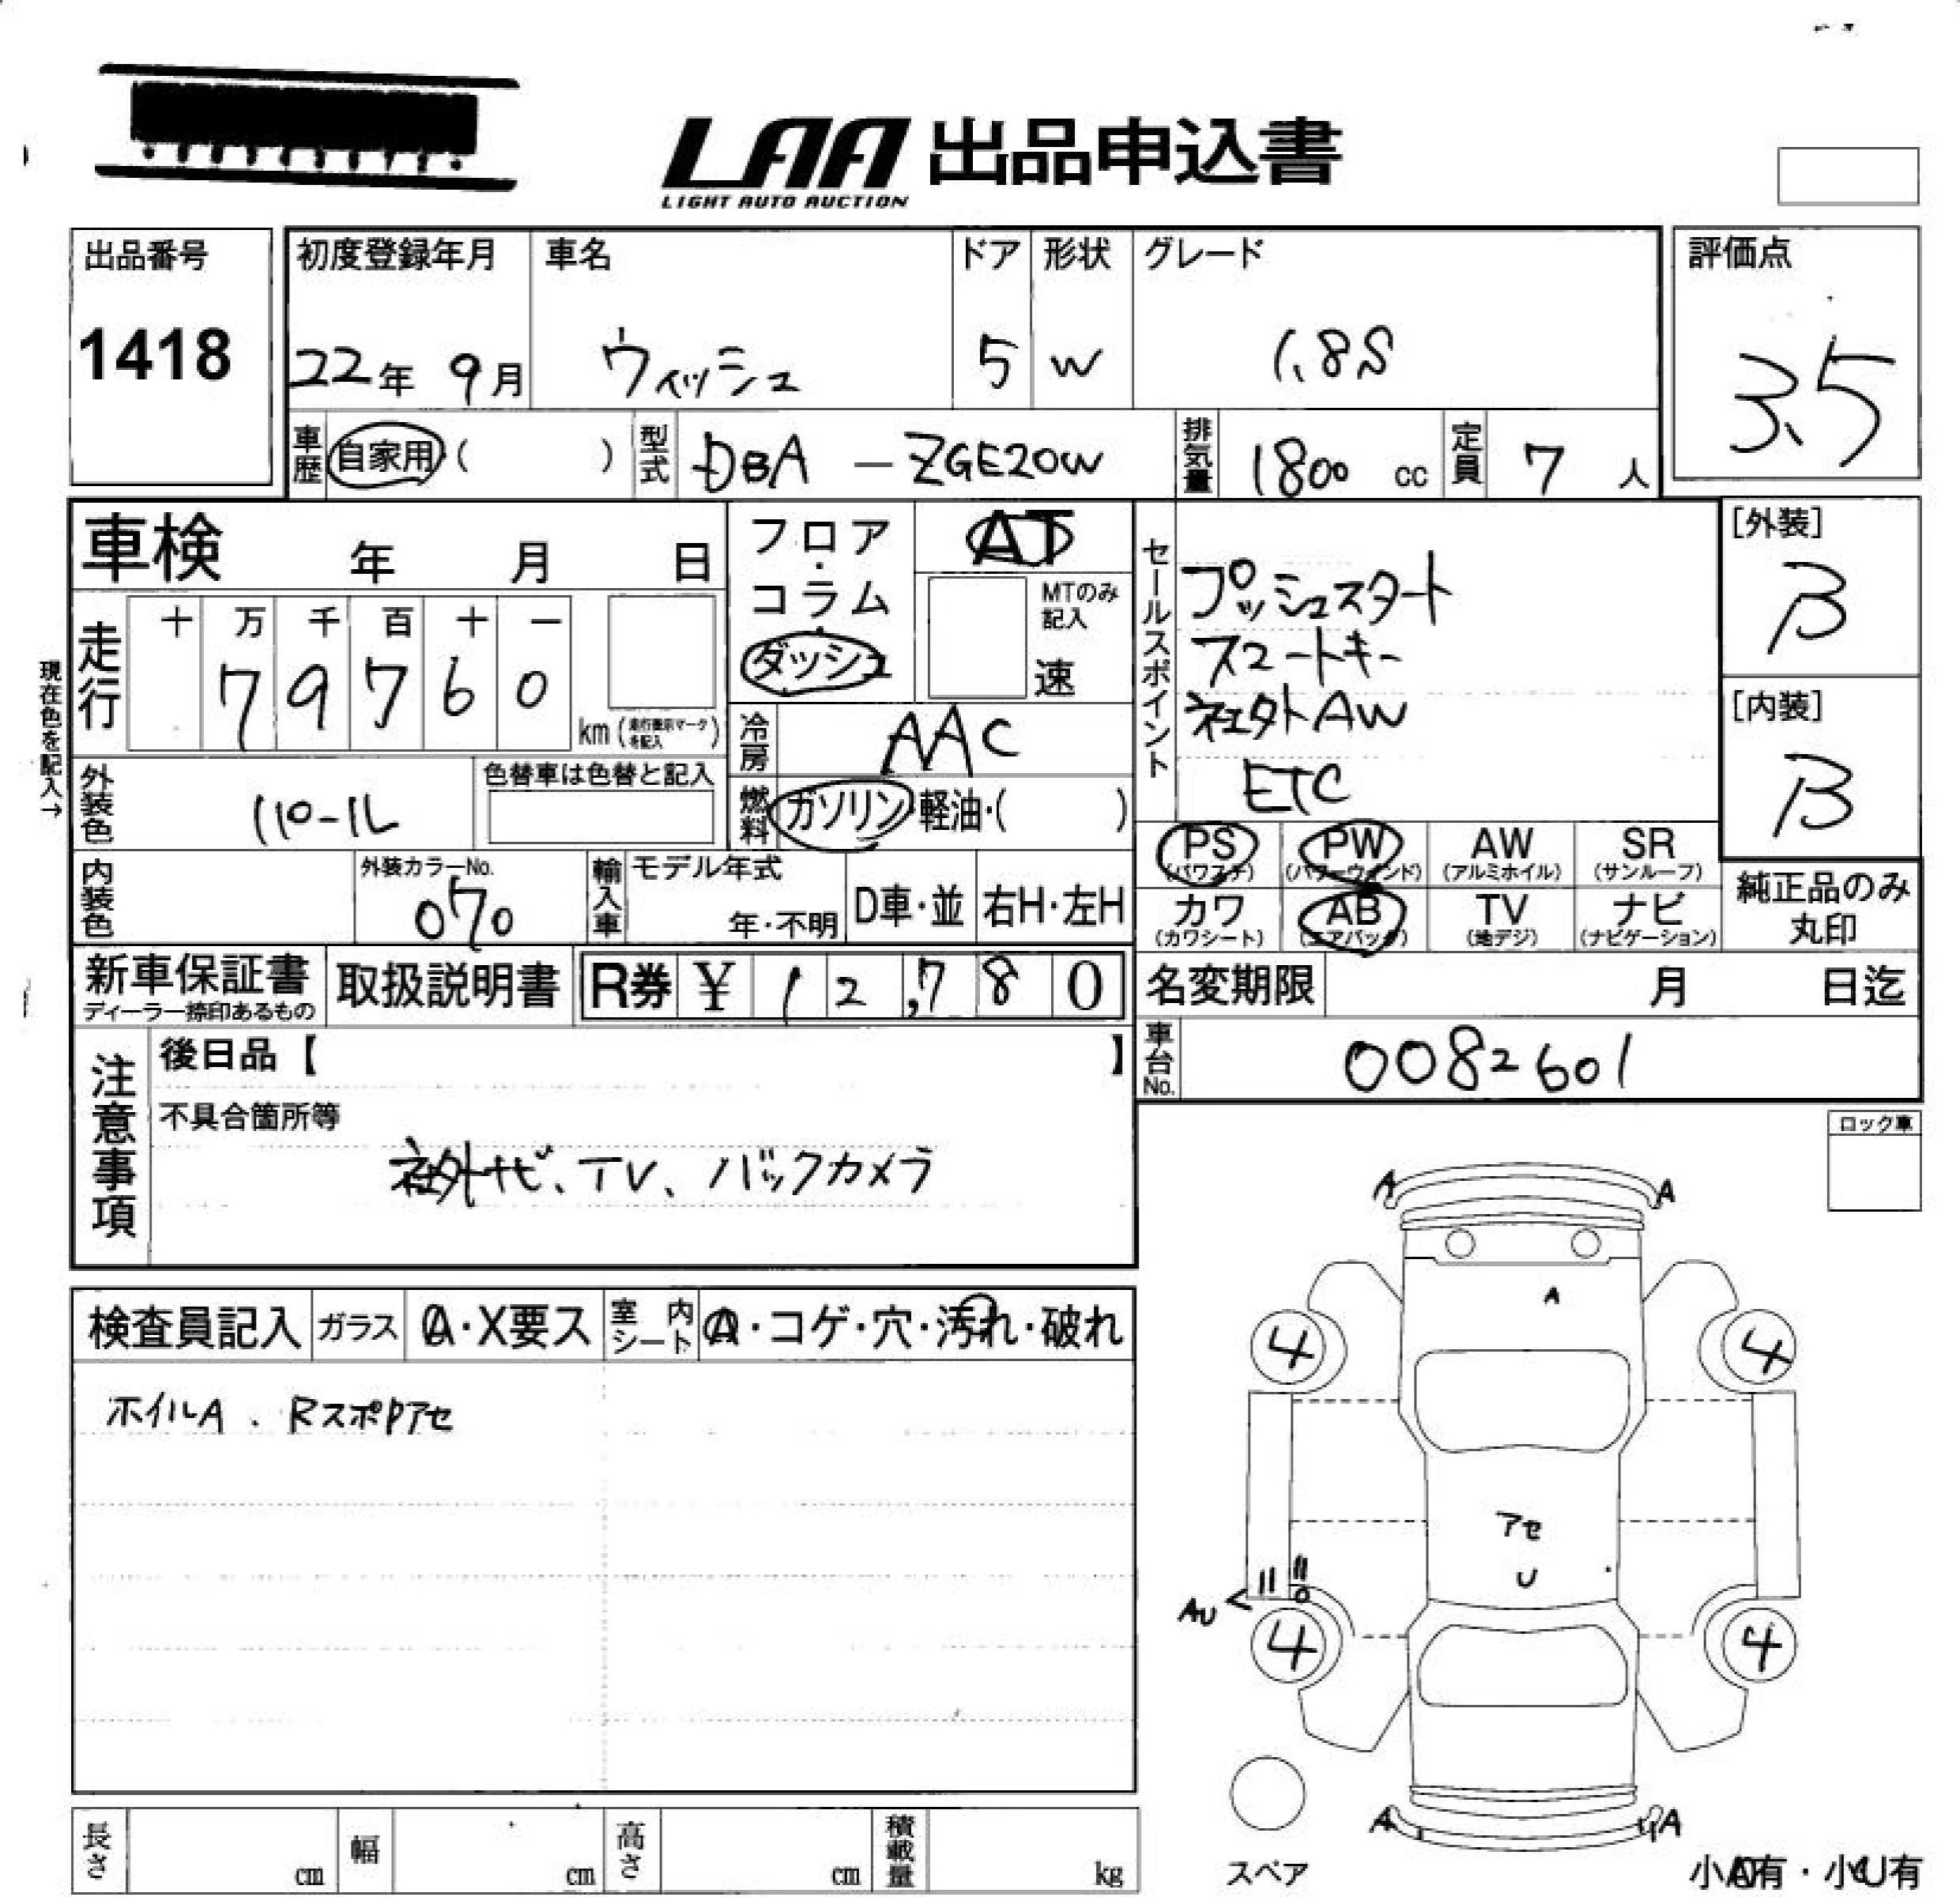 LAA 出品申込書
LIGHT AUTO AUCTION
出品番号
1418
初度登録年月
22年 9月
車名
ウィッシュ
ドア
5
形状
W
グレード
1.8S
評価点
3.5
車歴 自家用 ( )
型式 DBA — ZGE20W
排気量 1800 cc
定員 7 人
車検 年 月 日
フロア・コラム・ダッシュ
AT
MTのみ記入
速
現在色を記入→
走行 十 万 千 百 十 一
79760
km
冷房 AAC
外装色 パール
色替車は色替と記入
燃料 ガソリン・軽油・( )
内装色
外装カラーNo.
070
輸入車 モデル年式
年・不明
D車・並
右H・左H
セールスポイント
プッシュスタート
スマートキー
社外AW
ETC
[外装]
B
[内装]
B
PS (パワステ) PW (パワーウィンド) AW (アルミホイル) SR (サンルーフ)
カワ (カワシート) AB (エアバック) TV (地デジ) ナビ (ナビゲーション)
純正品のみ
丸印
新車保証書
ディーラー捺印あるもの
取扱説明書
R券 ¥ 12,780
名変期限 月 日迄
車台No. 0082601
注意事項
後日品【 】
不具合箇所等
社外ナビ、TV、バックカメラ
ロック車
検査員記入 ガラス A・X要ス 室内シート A・コゲ・穴・汚れ・破れ
ホイルA . Rスポアセ
A A
A
4 4
アセ
U
AU
4 4
A A
スペア
小A有・小U有
長さ cm 幅 cm 高さ cm 積載量 kg